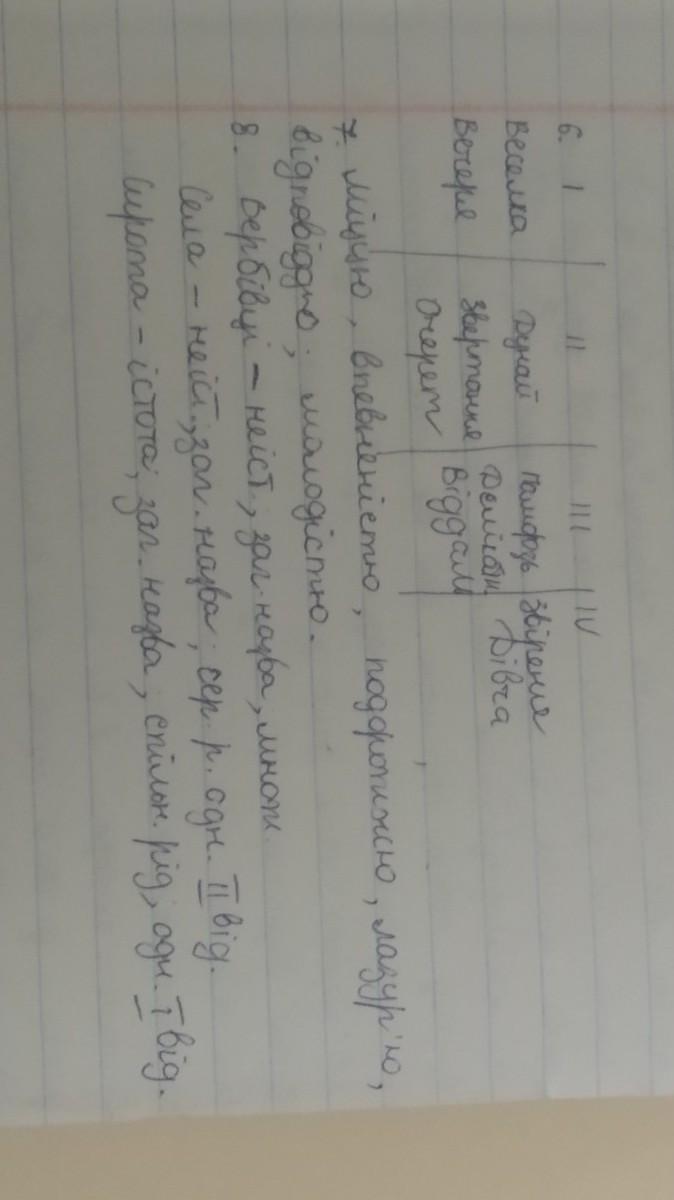 6. I II III IV
Веселка Дунай Памфозь Звіреня
Вечеря Звертання Деліботи Дівча
Очерет Віддаль
7. Міццю, впевненістю, подорожжю, лазур'ю,
відповіддю, молодістю.
8. Вербівці – неіст., заг. назва, множ.
Села – неіст., заг. назва, сер. р. одн. II від.
Сирота – істота, заг. назва, спільн. рід, одн. I від.